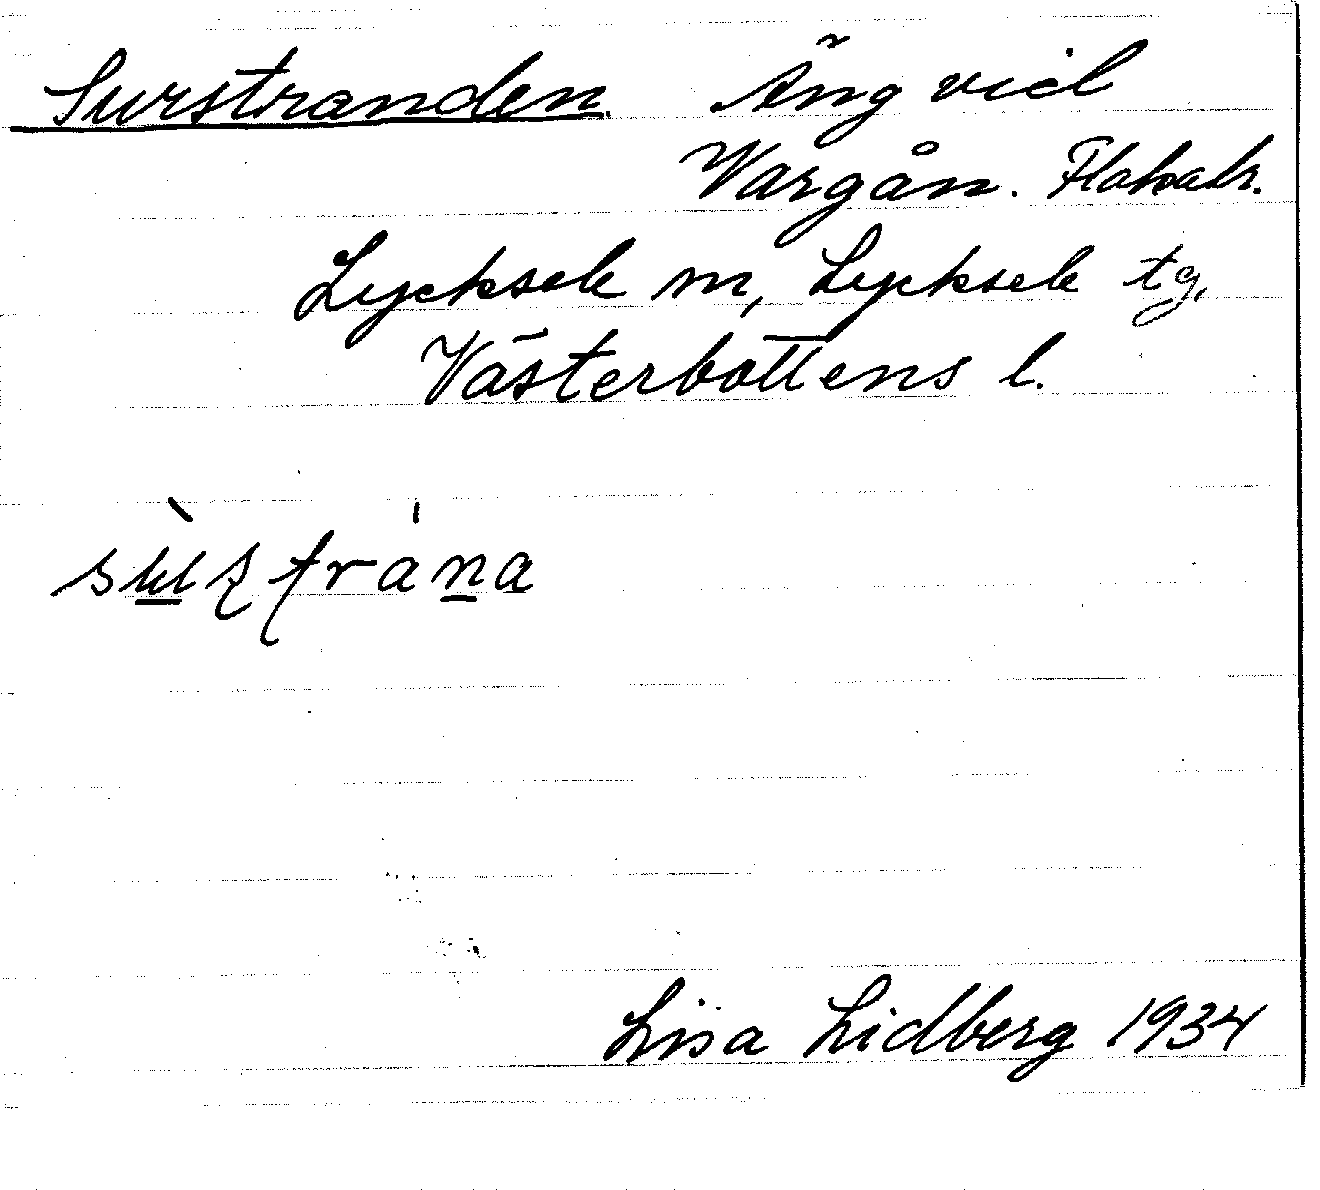 Surstranden. Äng vid
Vargån. Flakatr.
Lycksele m, Lycksele tg,
Västerbottens l.
Lisa Lidberg 1934